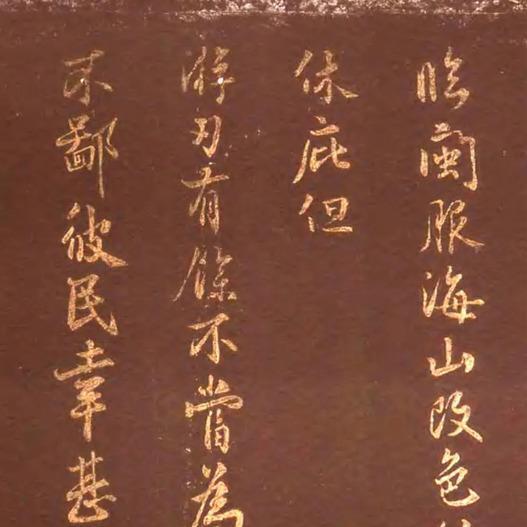 臨閩服海山改色
休庇但
游刃有餘不當為
不鄙彼民幸甚